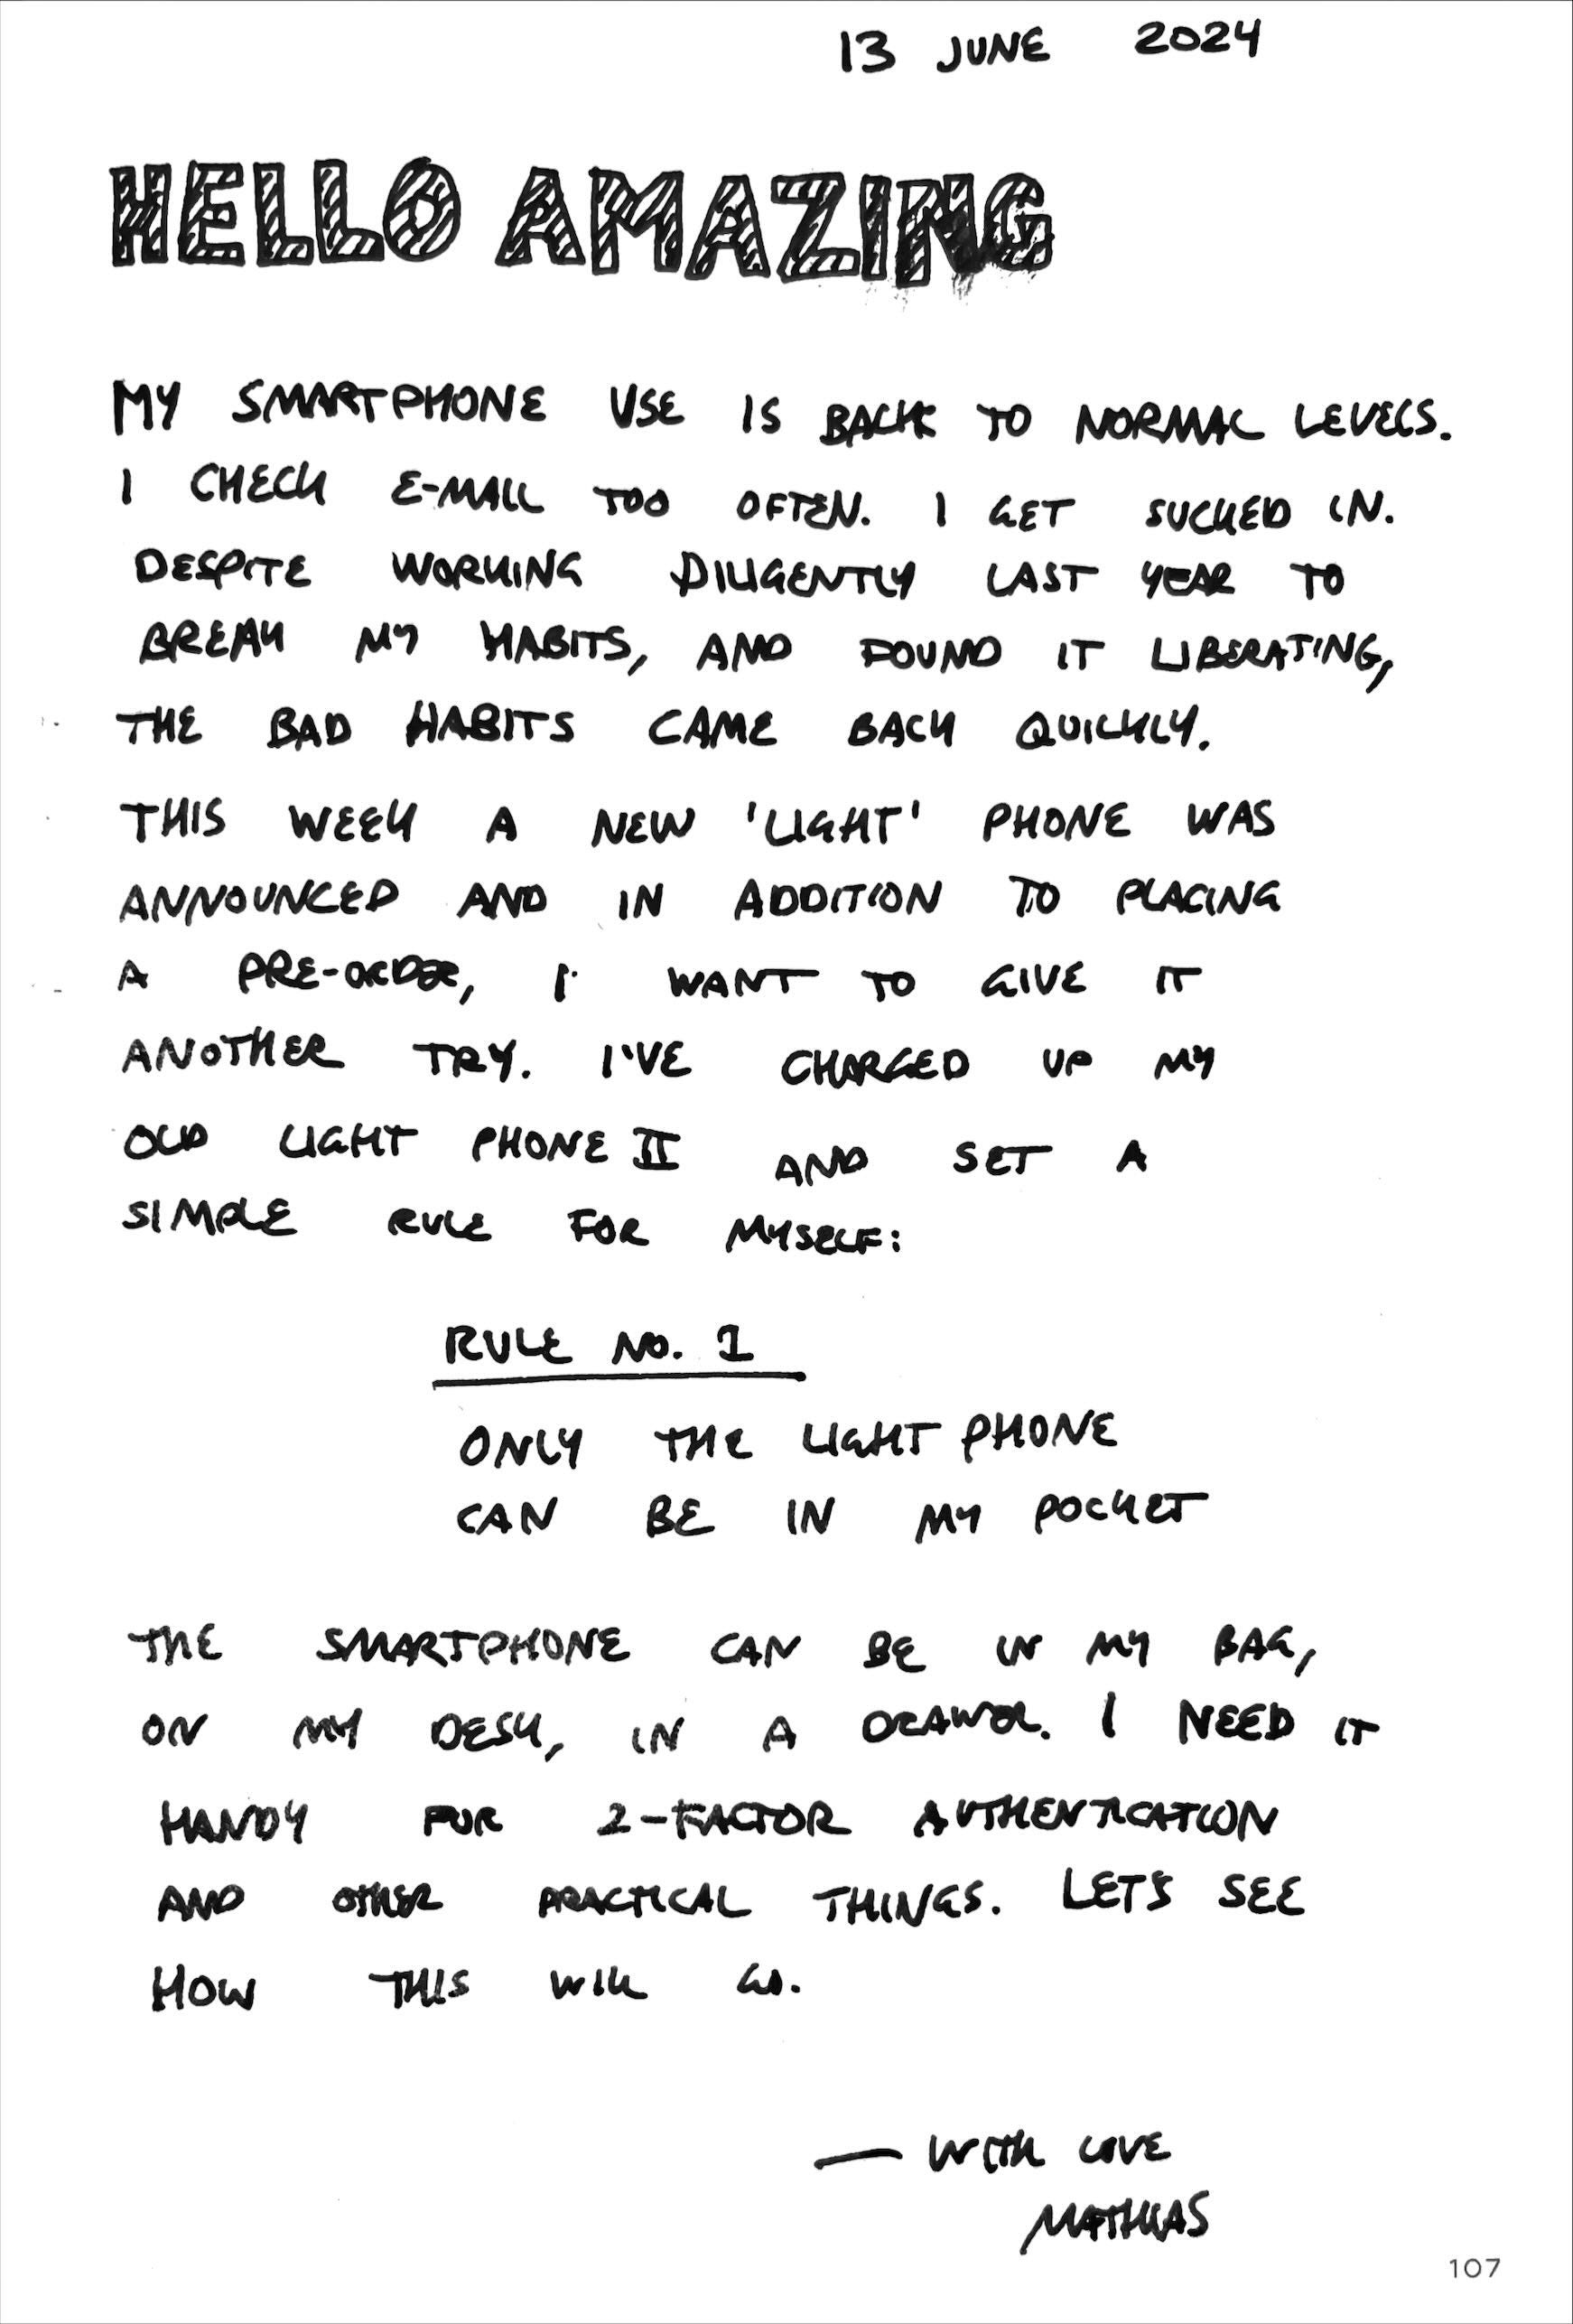 13 JUNE 2024
HELLO AMAZING
MY SMARTPHONE USE IS BACK TO NORMAL LEVELS.
I CHECK E-MAIL TOO OFTEN. I GET SUCKED IN.
DESPITE WORKING DILIGENTLY LAST YEAR TO
BREAK MY HABITS, AND FOUND IT LIBERATING,
THE BAD HABITS CAME BACK QUICKLY.
THIS WEEK A NEW 'LIGHT' PHONE WAS
ANNOUNCED AND IN ADDITION TO PLACING
A PRE-ORDER, I WANT TO GIVE IT
ANOTHER TRY. I'VE CHARGED UP MY
OLD LIGHT PHONE II AND SET A
SIMPLE RULE FOR MYSELF:
RULE NO. 1
ONLY THE LIGHT PHONE
CAN BE IN MY POCKET
THE SMARTPHONE CAN BE IN MY BAG,
ON MY DESK, IN A DRAWER. I NEED IT
HANDY FOR 2-FACTOR AUTHENTICATION
AND OTHER PRACTICAL THINGS. LET'S SEE
HOW THIS WILL GO.
— WITH LOVE
MATHIAS
107